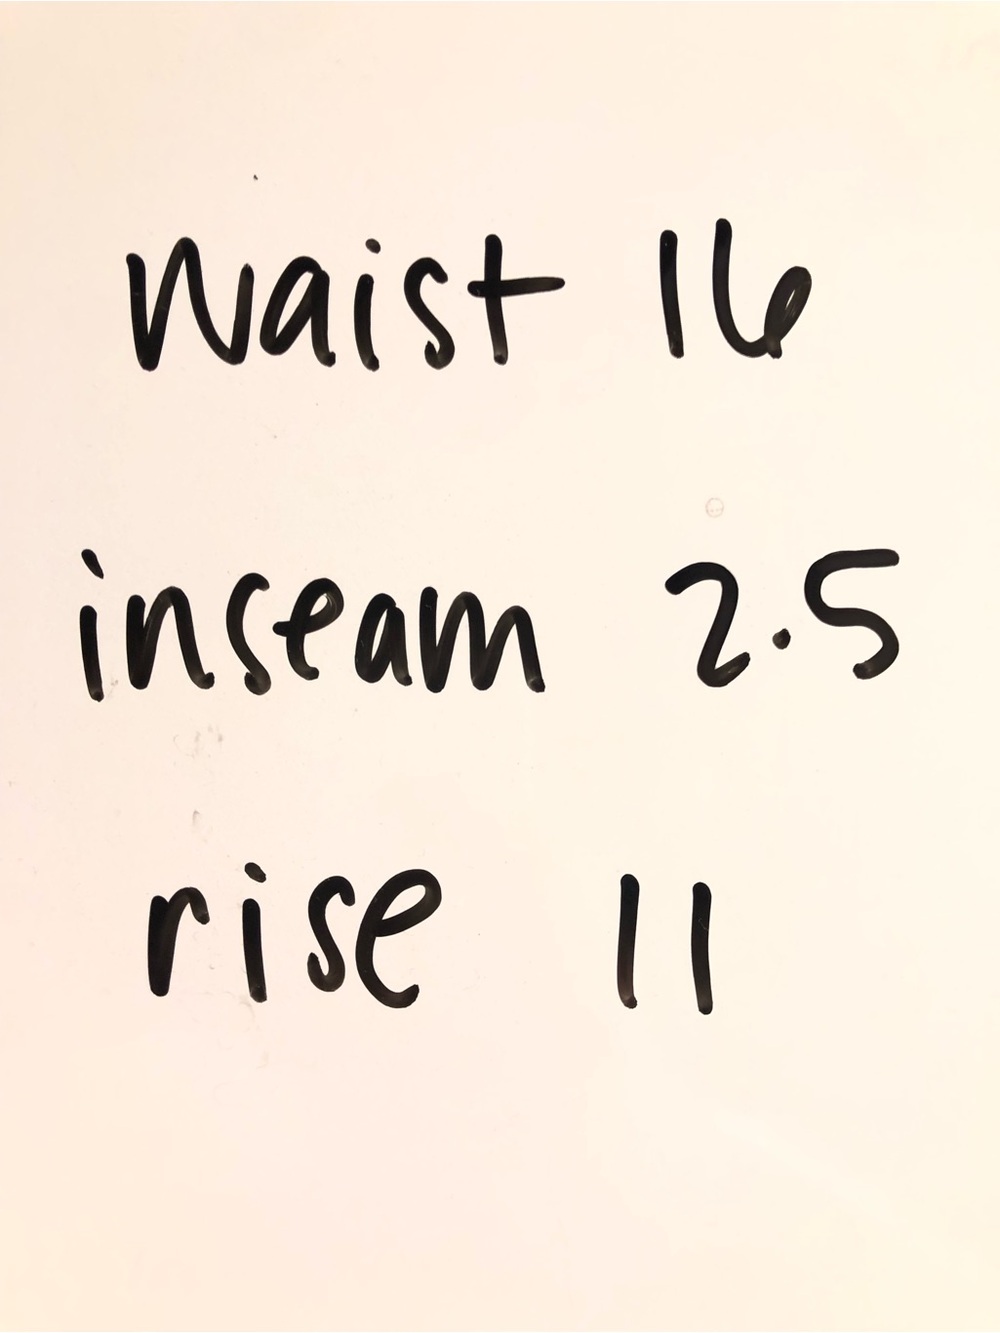 waist 16
inseam 2.5
rise 11